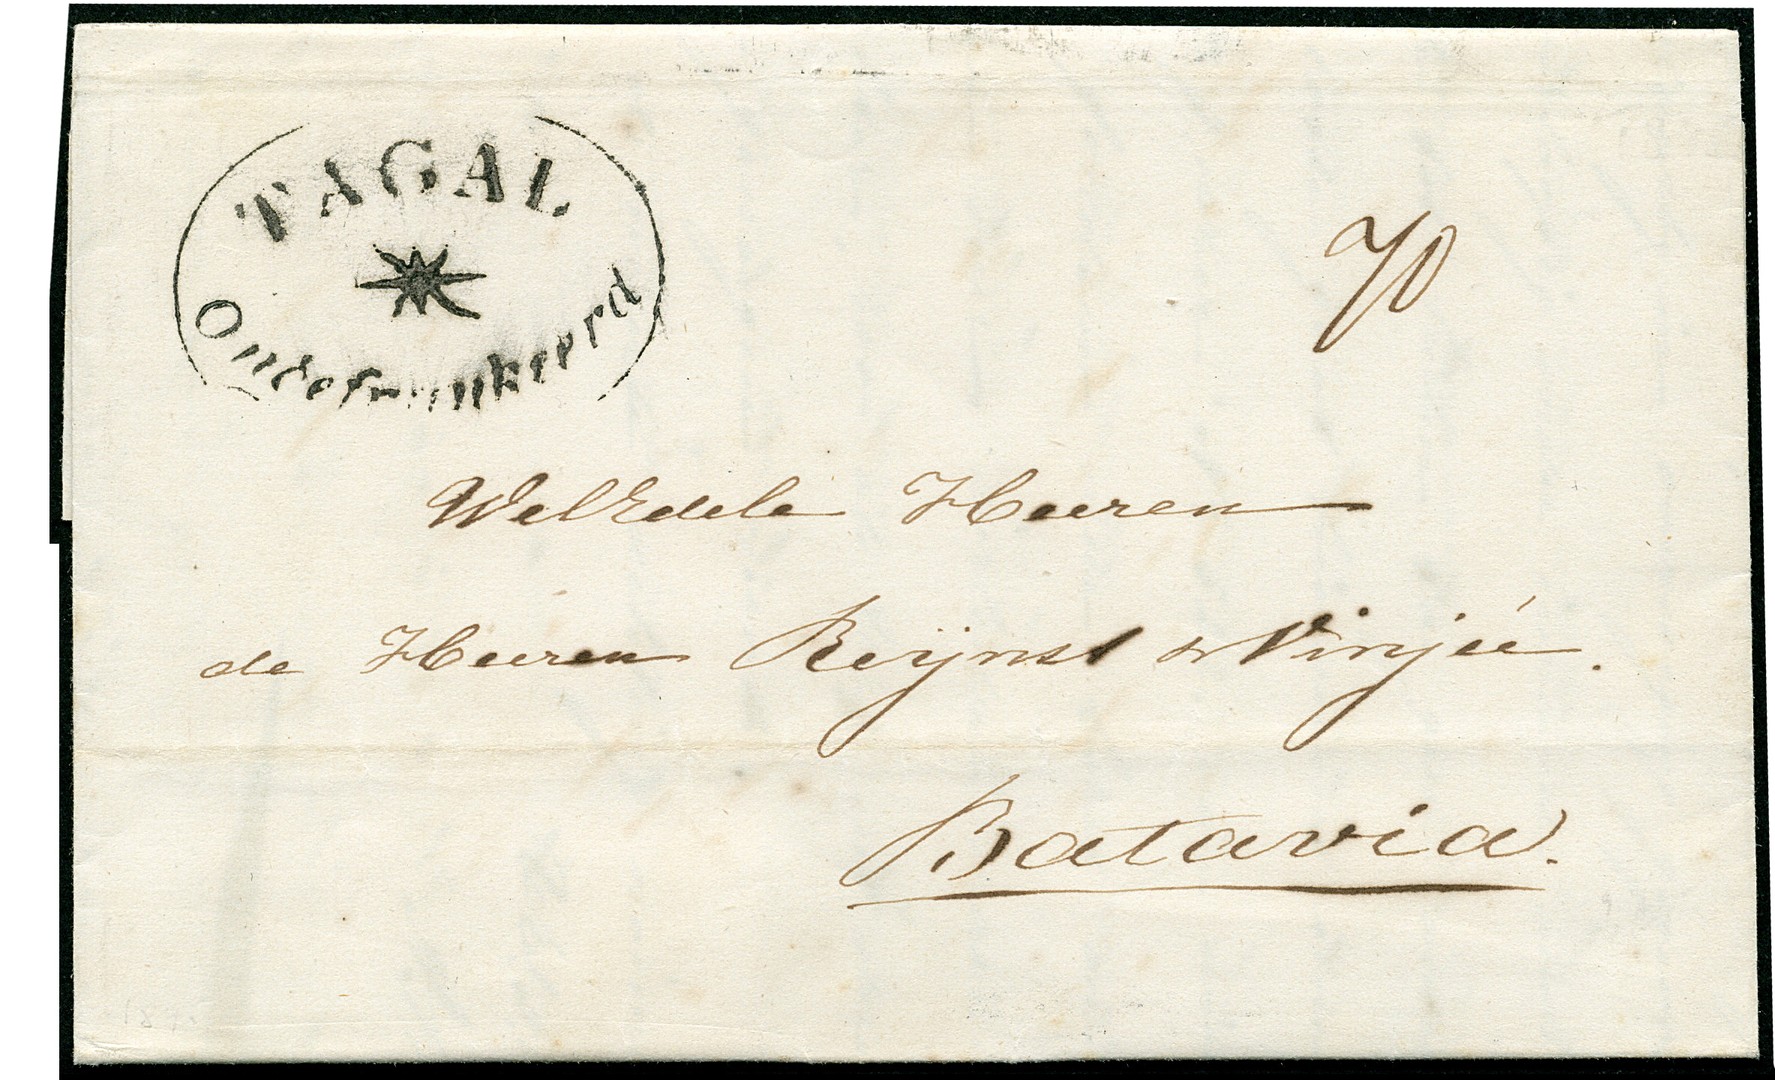 TAGAL
Ongefrankeerd
70
WelEdele Heeren
de Heeren Reijnst & Vinjéé.
Batavia.